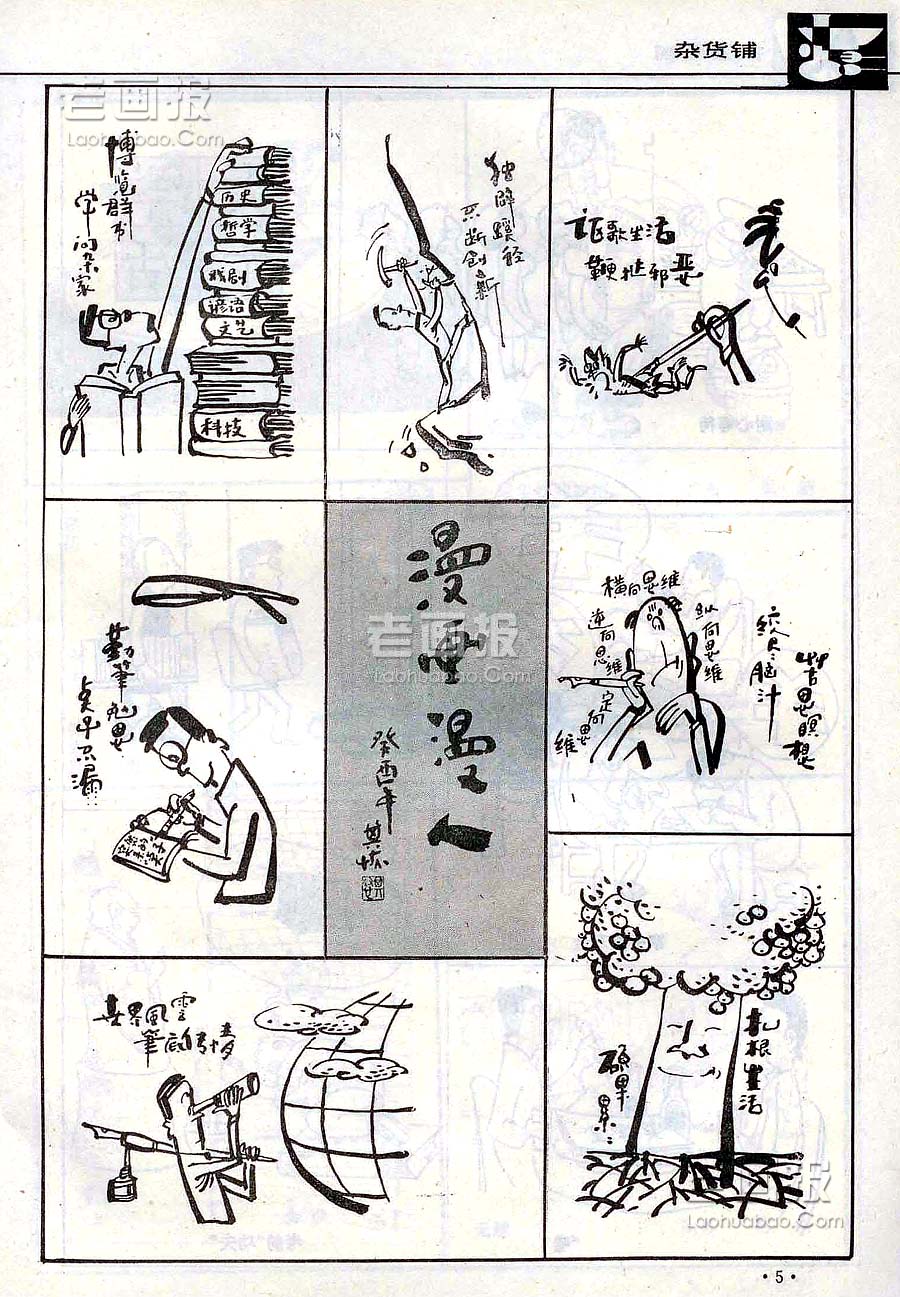 杂货铺
老画报
Laohuabao.Com
博览群书
学问杂家
历史
哲学
戏剧
谚语
文艺
科技
独辟蹊径
不断创新
讴歌生活
鞭挞邪恶
勤笔勉思
点子不漏
漫画漫人
癸酉年
老画报
Laohuabao.Com
横向思维
逆向思维
纵向思维
定向思维
绞尽脑汁
苦思瞑想
世界风雲
筆底传情
扎根生活
硕果累累
老画报
Laohuabao.Com
·5·